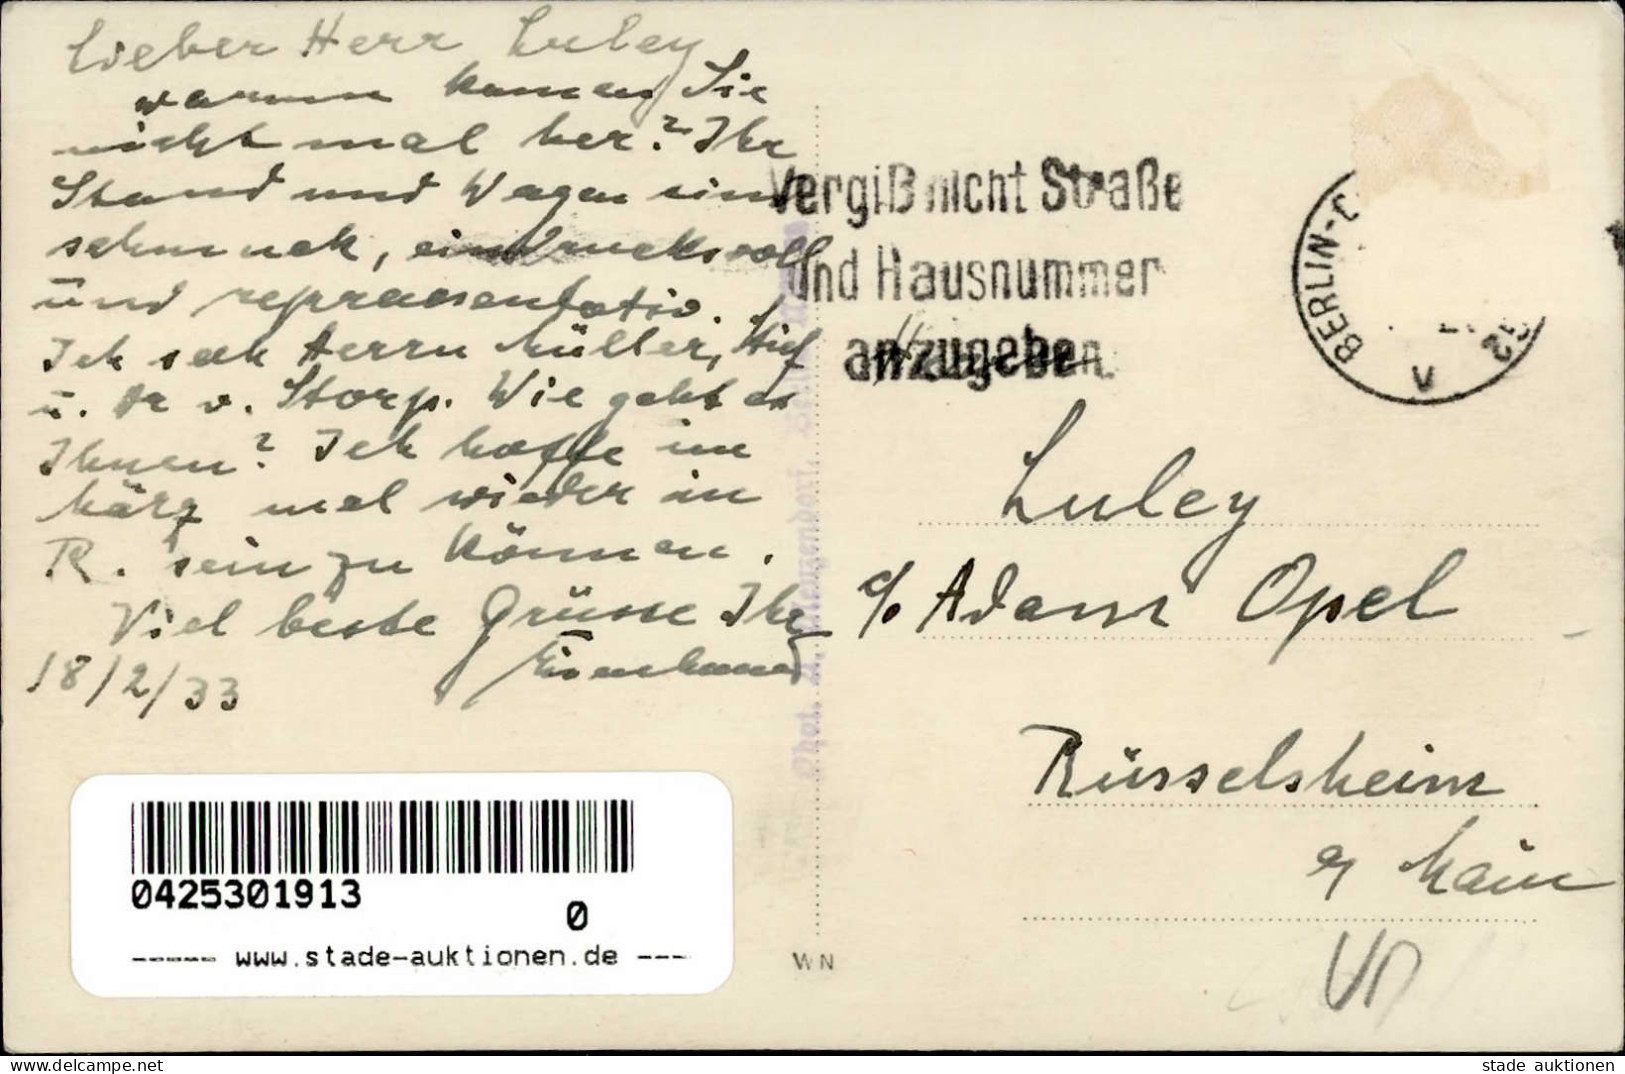 Lieber Herr Luley
warum kamen Sie
nicht mal her? Ihr
Stand und Wagen sind
schmuck, eindrucksvoll
und repraesentativ.
Ich sah Herrn Müller,
u. Dr v. Storp. Wie geht es
Ihnen? Ich hoffe im
März mal wieder in
R. sein zu können.
Viel beste Grüsse Ihr
18/2/33
Vergiß nicht Straße
und Hausnummer
anzugeben.
BERLIN-C
V
Luley
c/o Adam Opel
Rüsselsheim
a/ Main
Phot.
WN
0425301913
0
----- www.stade-auktionen.de ---
stade auktionen